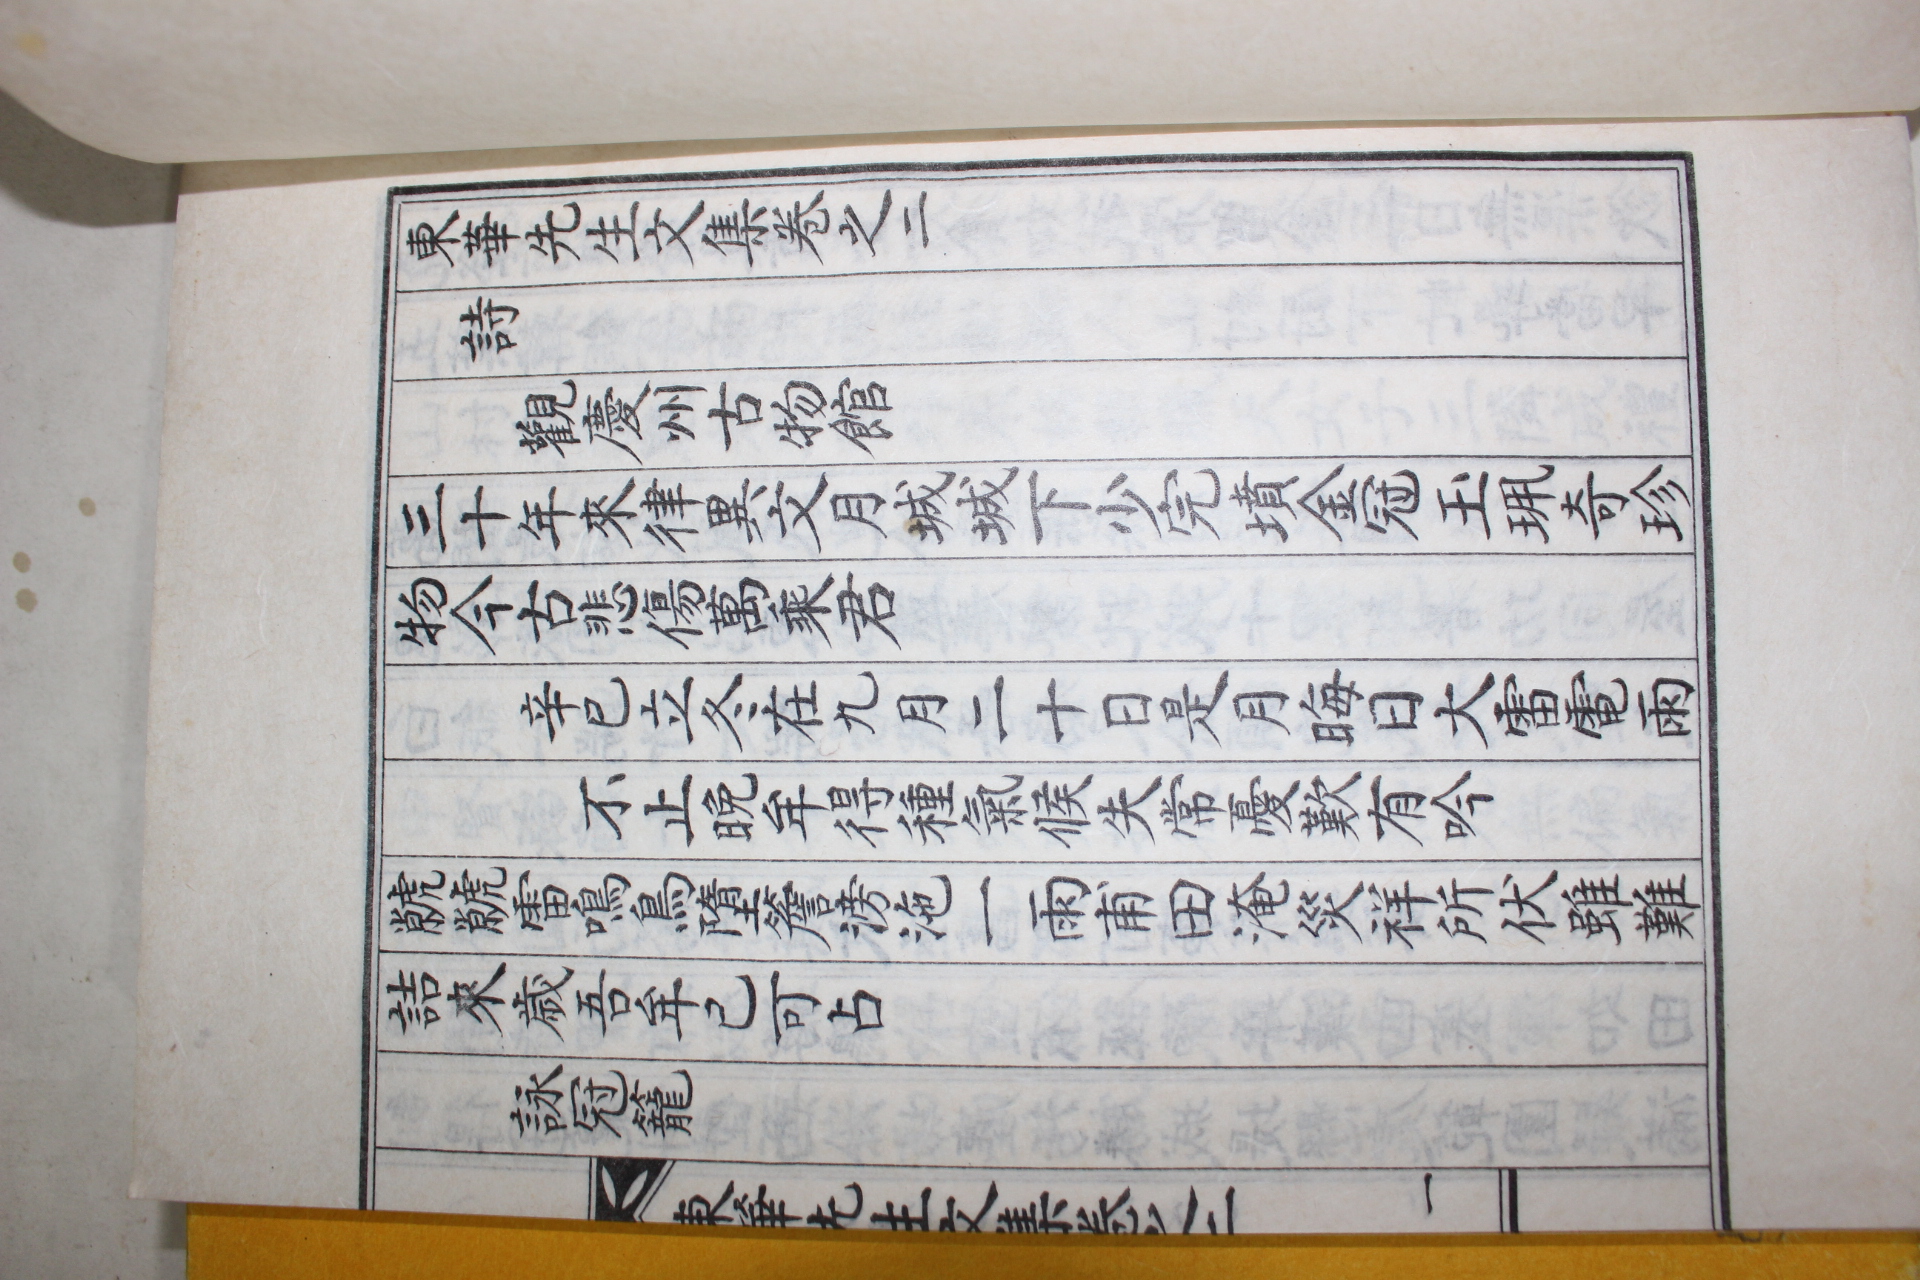 東華先生文集卷之二
詩
觀慶州古物館
三十年來律異文月城城下少完墳金冠玉珮奇珍
物今古悲傷萬乘君
辛巳立冬在九月二十日是月晦日大雷電雨
不止晩年得種氣候失常憂歎有吟
虩虩雷鳴鳥墮簷滂沱一雨甫田淹災祥所伏雖難
詰來歲吾年己可占
詠冠籠
東華先生文集卷之二 一